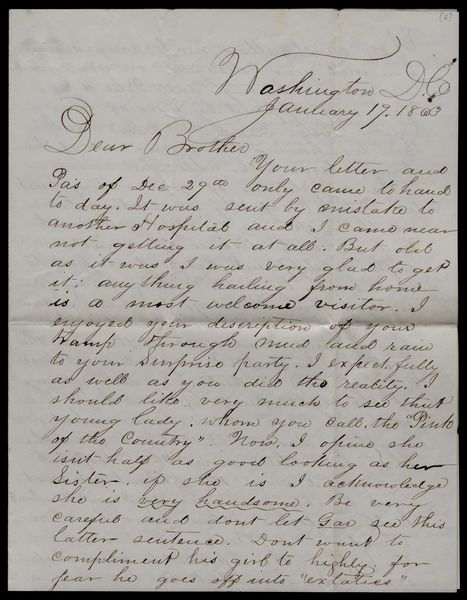 (2)
Washington D.C
January 19. 1863
Dear Brother
Your letter and
Pa's of Dec 29th only came to hand
to day. It was sent by mistake to
another Hospital and I came near
not getting it at all. But old
as it was I was very glad to get
it: anything hailing from home
is a most welcome visitor. I
enjoyed your discription of your
tramp through mud and rain
to your Surprise party. I expect fully
as well as you did the reality. I
should like very much to see that
young lady. whom you call the "Pink
of the Country" Now. I opine she
isnt half as good looking as her
Sister. if she is I acknowledge
she is very handsome. Be very
careful and dont let Gas see this
latter sentence. Dont want to
compliment his girl to highly, for
fear he goes off into "extatics"